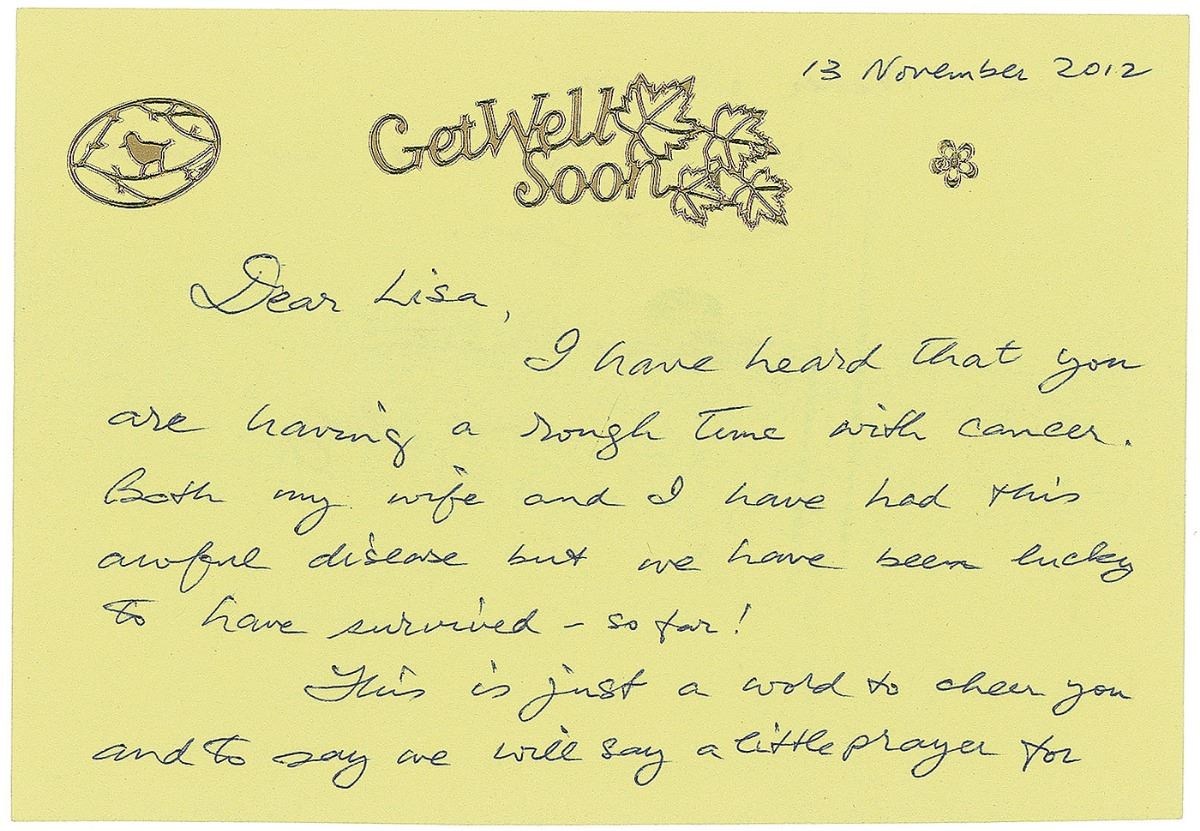 13 November 2012
Get Well
Soon
Dear Lisa,
I have heard that you
are having a rough time with cancer.
Both my wife and I have had this
awful disease but we have been lucky
to have survived – so far!
This is just a word to cheer you
and to say we will say a little prayer for